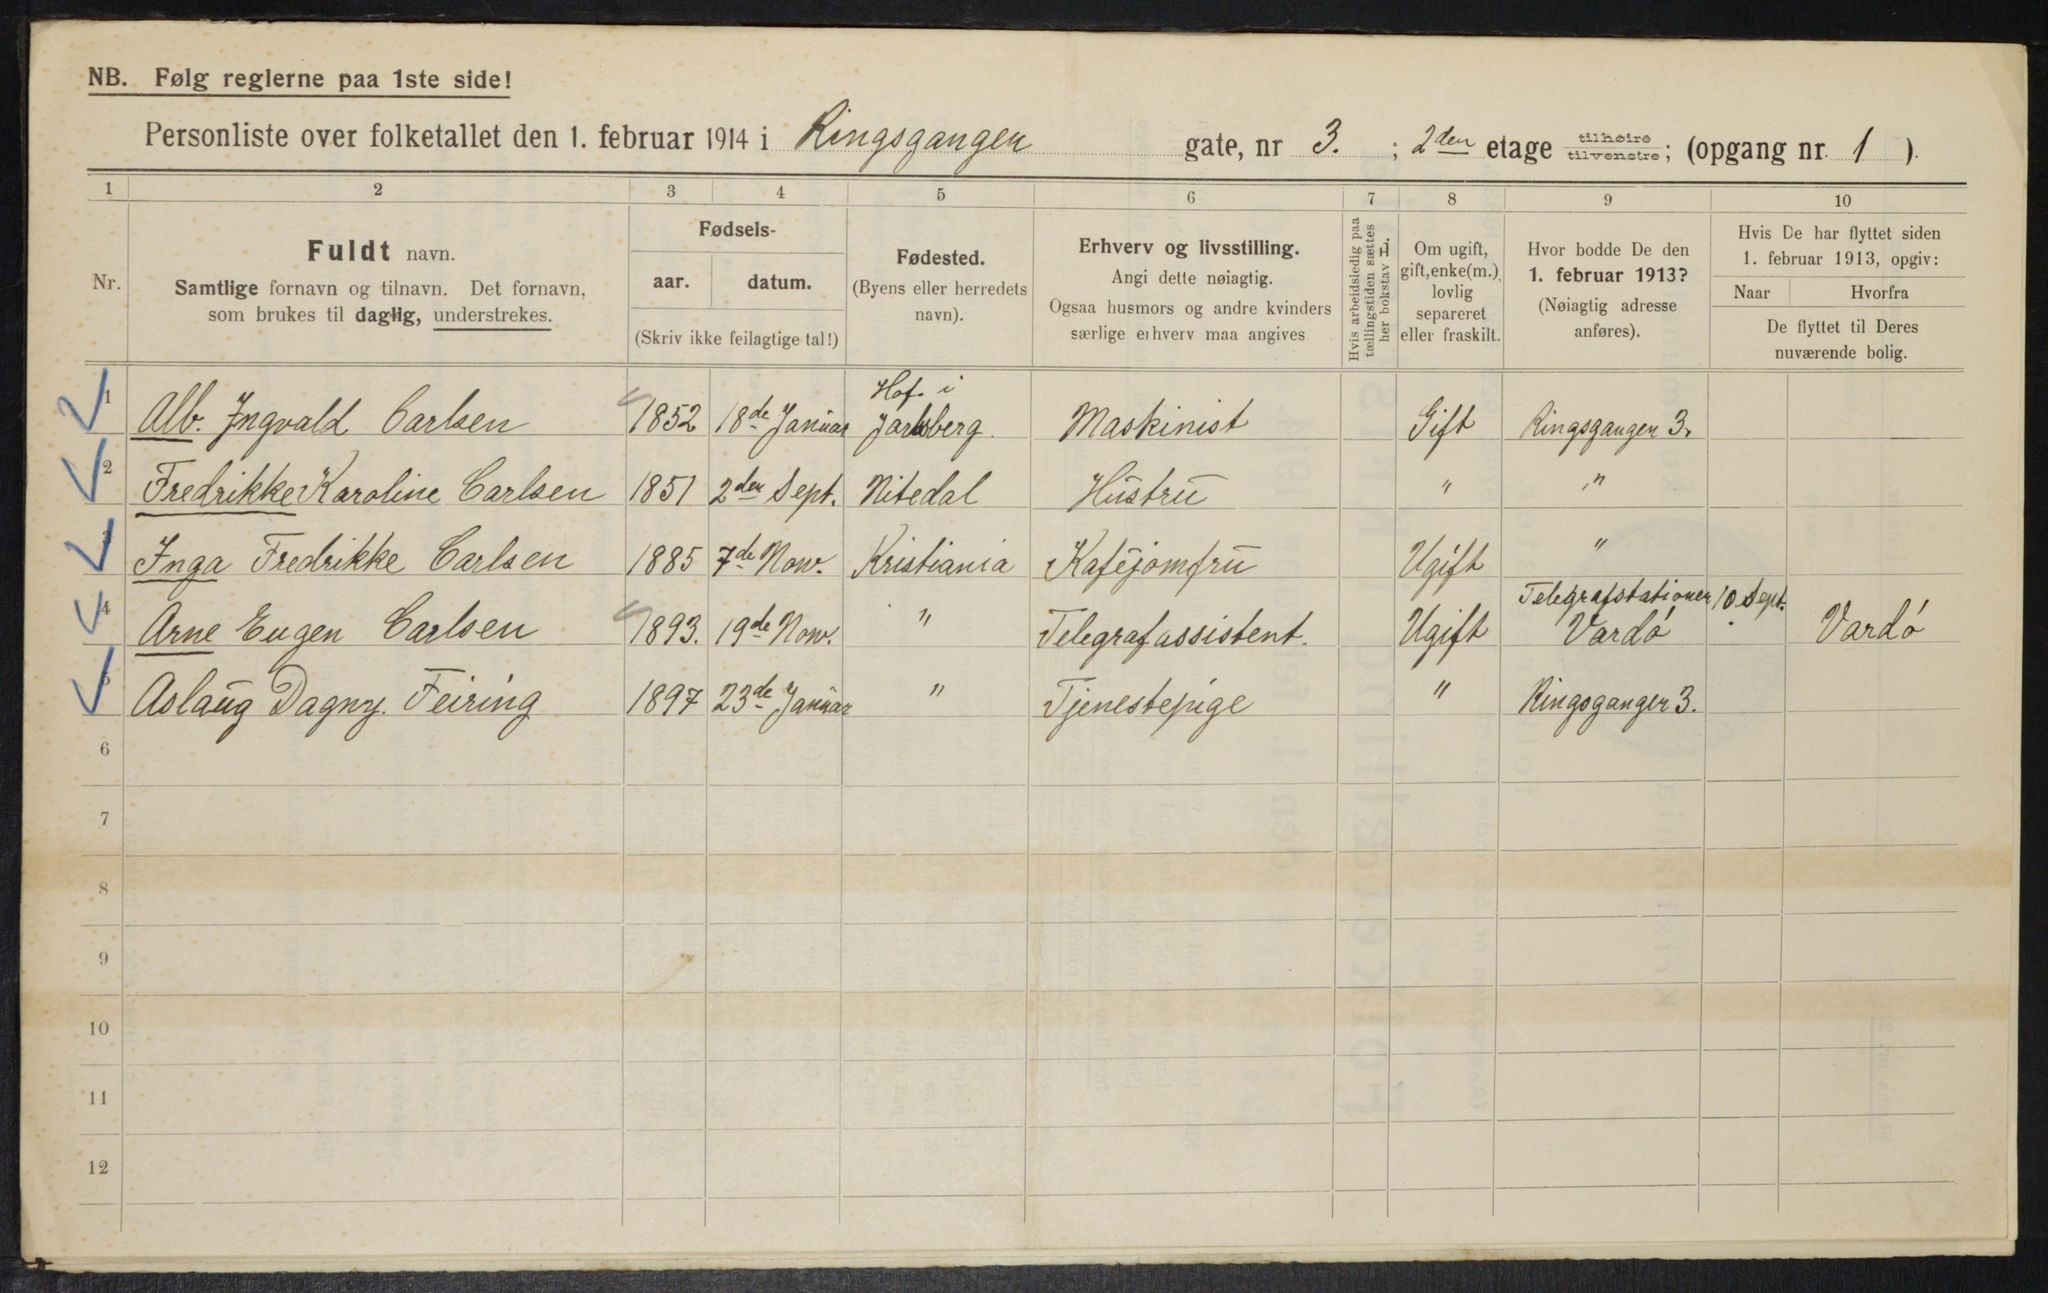 NB. Følg reglerne paa 1ste side!
Personliste over folketallet den 1. februar 1914 i Ringsgangen gate, nr 3. ; 2den etage tilhøire tilvenstre; (opgang nr. 1 ).
1 2 3 4 5 6 7 8 9 10
Nr.
Fuldt navn.
Samtlige fornavn og tilnavn. Det fornavn,
som brukes til daglig, understrekes.
Fødsels-
aar. datum.
(Skriv ikke feilagtige tal!)
Fødested.
(Byens eller herredets
navn).
Erhverv og livsstilling.
Angi dette nøiagtig.
Ogsaa husmors og andre kvinders
særlige erhverv maa angives
Hvis arbeidsledig paa
tællingstiden sættes
her bokstav L.
Om ugift,
gift, enke(m.),
lovlig
separeret
eller fraskilt.
Hvor bodde De den
1. februar 1913?
(Nøiagtig adresse
anføres).
Hvis De har flyttet siden
1. februar 1913, opgiv:
Naar Hvorfra
De flyttet til Deres
nuværende bolig.
1 Alb. Ingvald Carlsen 1852 18de Januar Hof. i Jarlsberg. Maskinist Gift Ringsgangen 3.
2 Fredrikke Karoline Carlsen 1851 2den Sept. Nitedal Hustru " "
3 Inga Fredrikke Carlsen 1885 7de Nov. Kristiania Kaféjomfru Ugift "
4 Arne Eugen Carlsen 1893. 19de Nov. " Telegrafassistent. Ugift Telegrafstationen Vardö 10. Sept. Vardö
5 Aslaug Dagny. Feiring 1897 23de Januar " Tjenestepige " Ringsgangen 3.
6
7
8
9
10
11
12